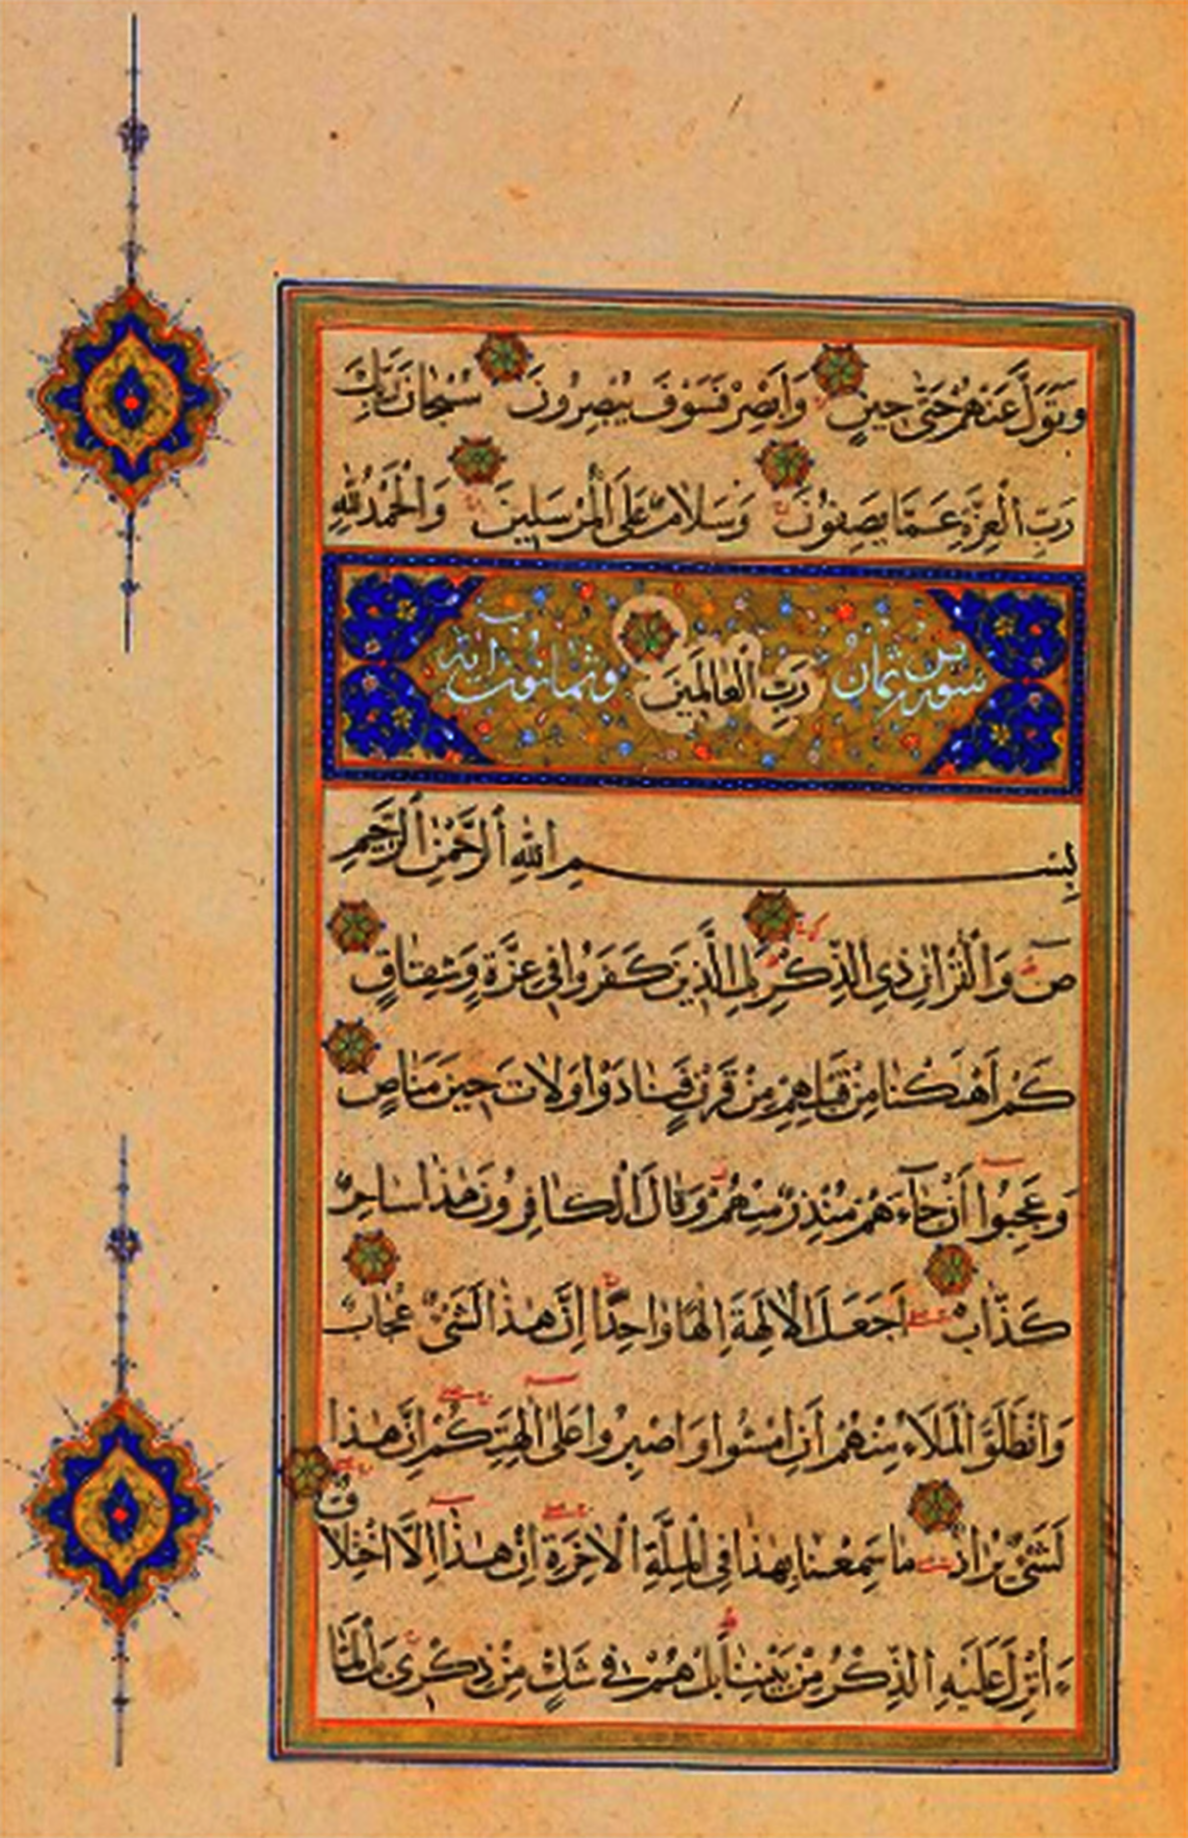 وَتَوَلَّ عَنْهُمْ حَتَّىٰ حِينٍ وَأَبْصِرْ فَسَوْفَ يُبْصِرُونَ سُبْحَانَ رَبِّكَ
رَبِّ الْعِزَّةِ عَمَّا يَصِفُونَ وَسَلَامٌ عَلَى الْمُرْسَلِينَ وَالْحَمْدُ لِلّٰهِ
سورة ص ثمان رَبِّ الْعَالَمِينَ وثمانون اية
بِسْمِ اللّٰهِ الرَّحْمٰنِ الرَّحِيمِ
صٓ وَالْقُرْاٰنِ ذِي الذِّكْرِ بَلِ الَّذِينَ كَفَرُوا فِي عِزَّةٍ وَشِقَاقٍ
كَمْ اَهْلَكْنَا مِنْ قَبْلِهِمْ مِنْ قَرْنٍ فَنَادَوْا وَلَاتَ حِينَ مَنَاصٍ
وَعَجِبُوا اَنْ جَاۤءَهُمْ مُنْذِرٌ مِنْهُمْ وَقَالَ الْكَافِرُونَ هٰذَا سَاحِرٌ
كَذَّابٌ اَجَعَلَ الْاٰلِهَةَ اِلٰهًا وَاحِدًا اِنَّ هٰذَا لَشَيْءٌ عُجَابٌ
وَانْطَلَقَ الْمَلَاُ مِنْهُمْ اَنِ امْشُوا وَاصْبِرُوا عَلٰى اٰلِهَتِكُمْ اِنَّ هٰذَا
لَشَيْءٌ يُرَادُ مَا سَمِعْنَا بِهٰذَا فِي الْمِلَّةِ الْاٰخِرَةِ اِنْ هٰذَا اِلَّا اخْتِلَاقٌ
ءَاُنْزِلَ عَلَيْهِ الذِّكْرُ مِنْ بَيْنِنَا بَلْ هُمْ فِي شَكٍّ مِنْ ذِكْرِي بَلْ لَمَّا